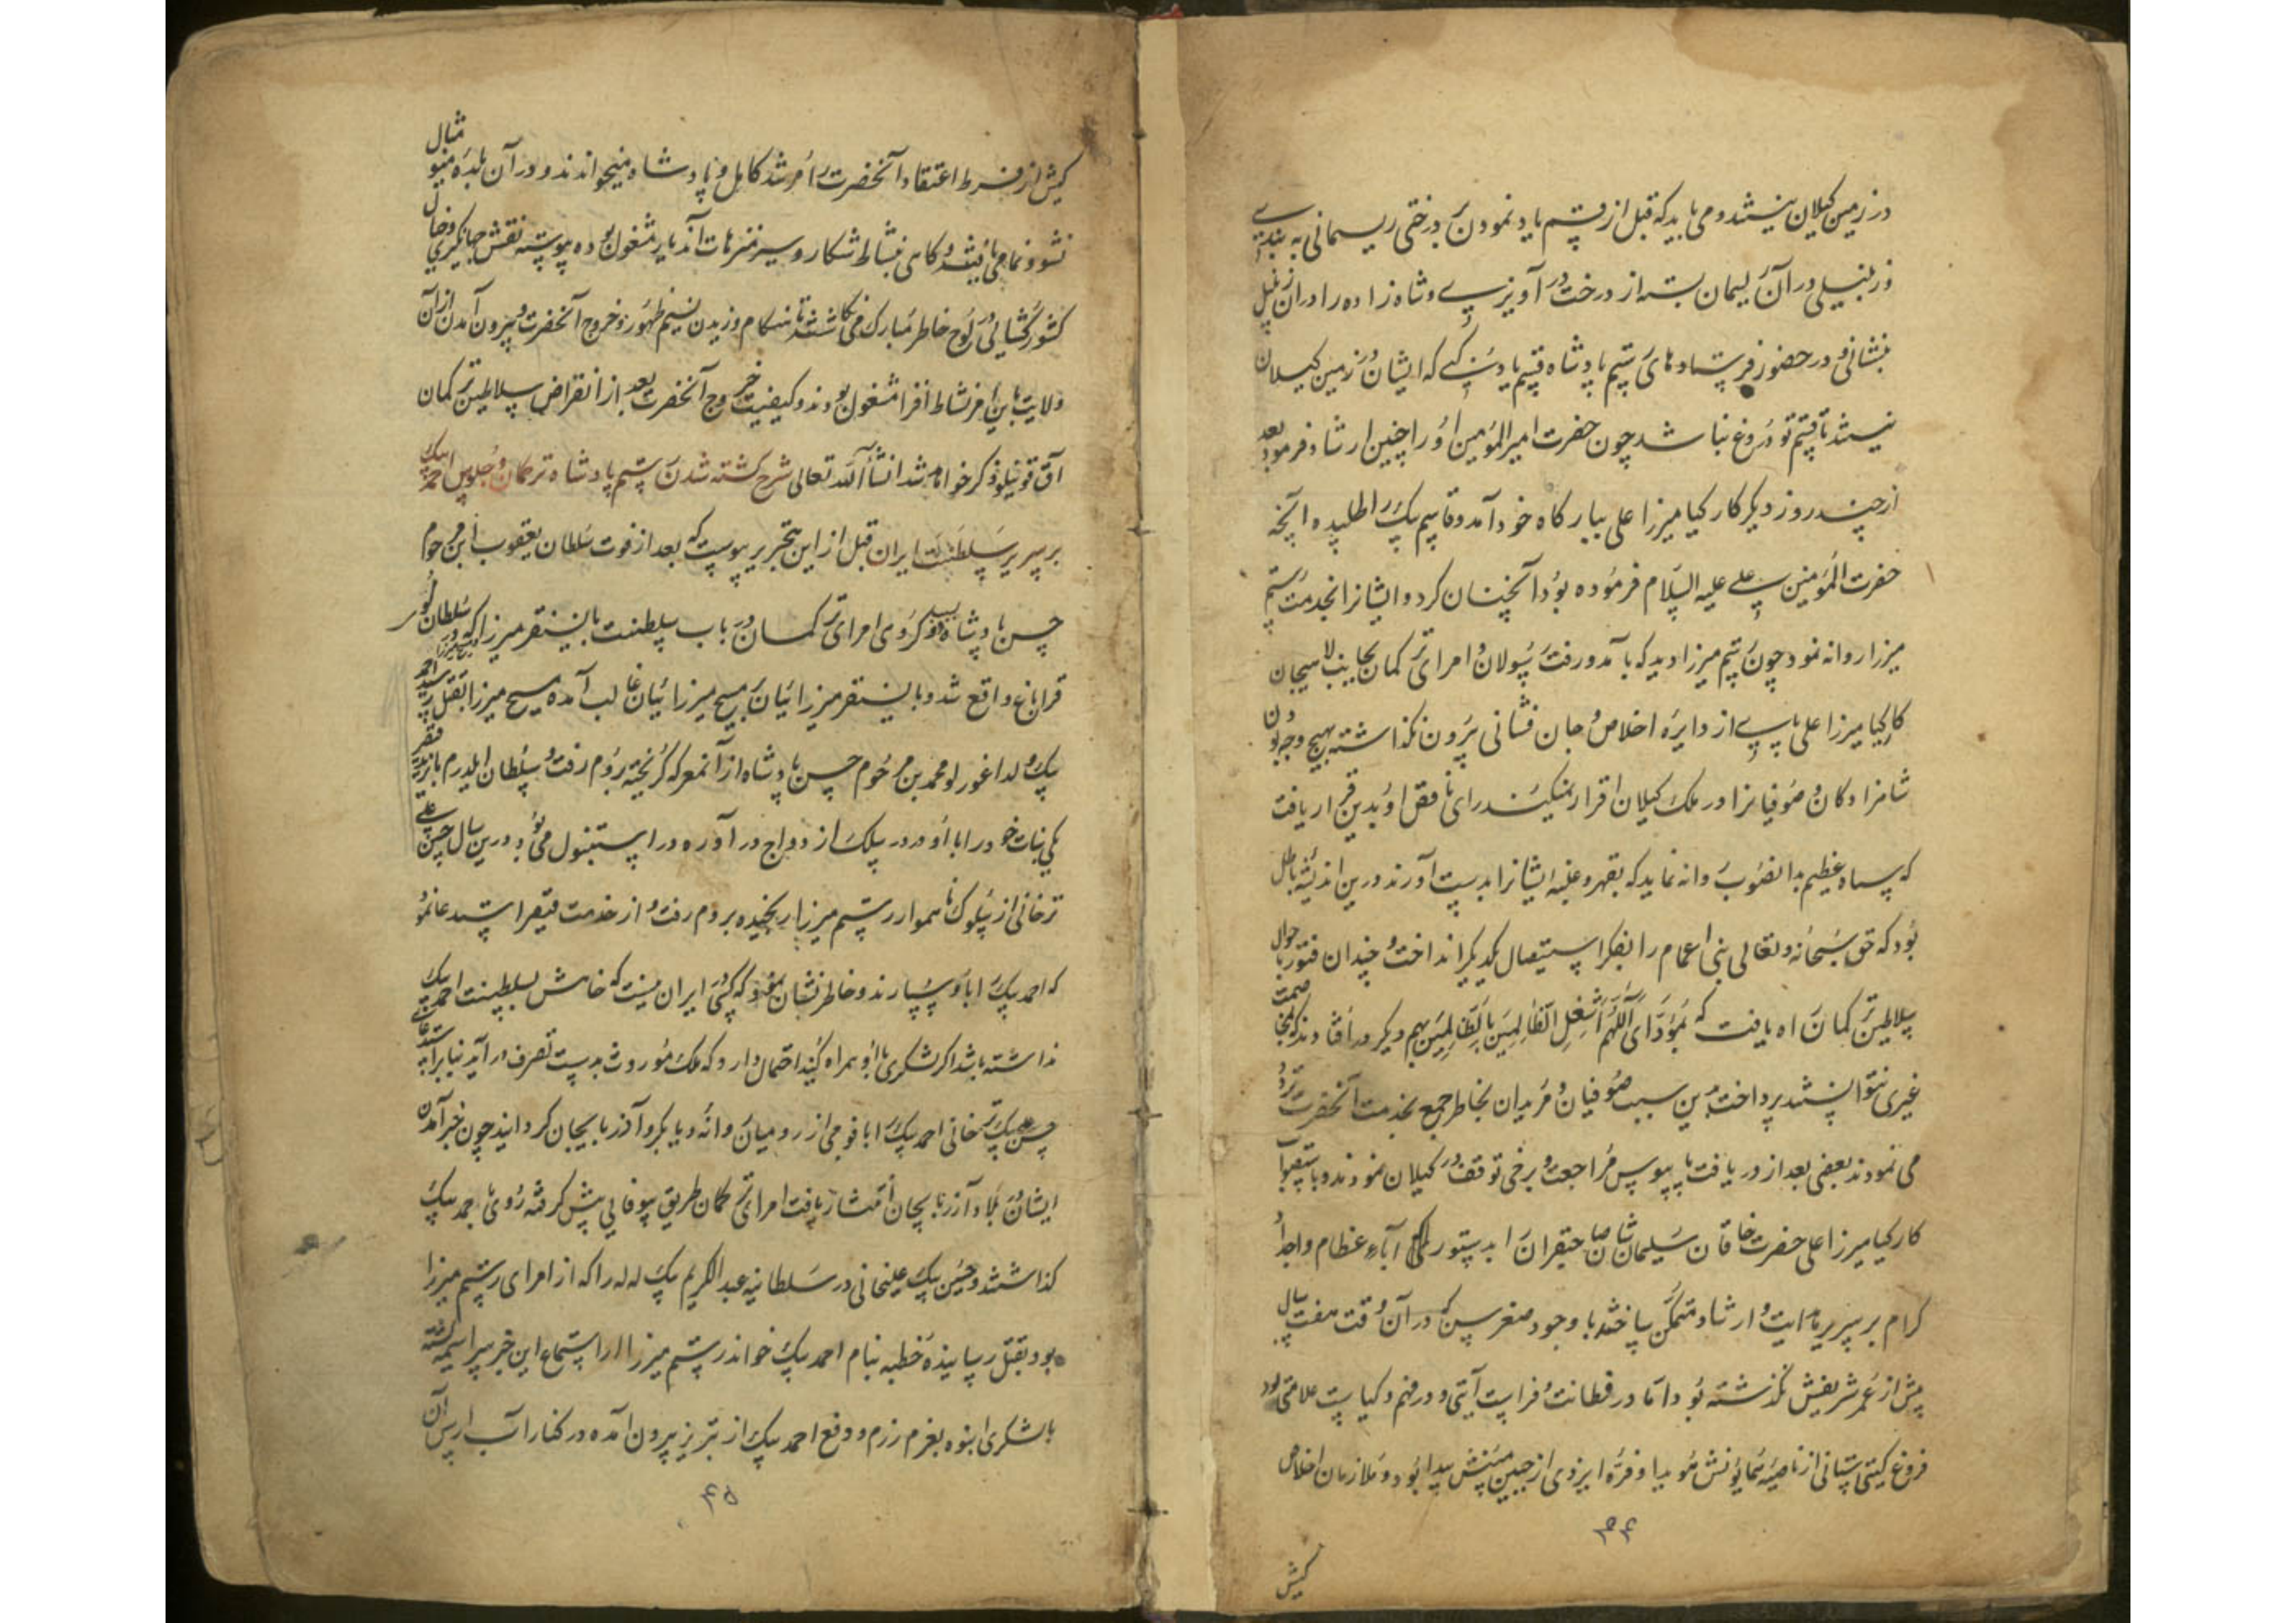 در زمین کیلان نیستند و می باید که قبل از قسم یاد نمودن بر درختی ریسمانی به بندی
و زنبیلی در آن ریسمان بسته از درخت در آویزی و شاه زاده را در ان زنبیل
بنشانی و در حضور فرستاد های رستم پادشاه قسم یاد کنی که ایشان در زمین کیلان
نیستند تا قسم تو دروغ نباشد چون حضرت امیر المؤمنین او را چنین ارشاد فرمود بعد
از چند روز دیکر کارکیا میرزا علی ببارکاه خود آمد و قاسم بیک را طلبیده آنچه
حضرت المؤمنین علی علیه السلام فرموده بود آنچنان کرد و ایشانرا بخدمت رستم
میرزا روانه نمود چون رستم میرزا دید که با آمد و رفت رسولان و امرای ترکمان بجانب لاهیجان
کارکیا میرزا علی پای از دایره اخلاص و جان فشانی بیرون نکذاشته بهیچ وجه بودن
شاهزادکان و صوفیانرا در ملک کیلان اقرار نمیکند رای ناقص او بدین قرار یافت
که سپاه عظیم بدانصوب روانه نماید که بقهر و غلبه ایشانرا بدست آورند درین اندیشه باطل
بود که حق سبحانه و تعالی بنی اعمام را بفکر استیصال یکدیکر انداخت و چندان فتور باحوال
سلاطین ترکمان راه یافت که بمؤدای اللهم اشغل الظالمین بالظالمین بهم دیکر در افتادند که بمخاصمت
غیری نتوانستند پرداخت بدین سبب صوفیان و مریدان بخاطر جمع بخدمت آنحضرت تردد
می نمودند بعضی بعد از دریافت پابوس مراجعت و برخی توقف در کیلان نمودند و باستصواب
کارکیا میرزا علی حضرت خاقان سلیمان شان صاحبقران را بدستور آباء عظام و اجداد
کرام بر سریر هدایت و ارشاد متمکن ساختند با وجود صغر سن که در آن وقت هفت سال
بیش از عمر شریفش نکذشته بود اما در فطانت و فراست آیتی و در فهم و کیاست علامتی بود
فروغ کیتی ستانی از ناصیه همایونش هویدا و فره ایزدی از جبین مبینش پیدا بود و ملازمان اخلاص
۴۴
کیش
کیش از فرط اعتقاد آنحضرت را مرشد کامل و پادشاه میخواندند و در آن بلده مینو مثال
نشو و نما می یافتند و کاهی بنشاط شکار و سیر منزهات آندیار مشغول بوده پیوسته نقش جهانکیری و خیال
کشورکشائی در لوح خاطر مبارک می نکاشتند تا هنکام وزیدن نسیم ظهور و خروج آنحضرت و بیرون آمدن از آن
ولایت باین امر نشاط افزا مشغول بودند و کیفیت خروج آنحضرت بعد از انقراض سلاطین ترکمان
آق قوینلو ذکر خواهد شد انشاء الله تعالی شرح کشته شدن رستم پادشاه ترکمان و جلوس احمد بیک
بر سریر سلطنت ایران قبل از این بتحریر پیوست که بعد از فوت سلطان یعقوب ابن مرحوم
حسن پادشاه کروی امرای ترکمان در باب سلطنت بایسنقر میرزا که در سلطان
قراباغ واقع شد و بایسنقر میرزائیان بر مسیح میرزائیان غالب آمده مسیح میرزا بقتل رسید احمد
بیک ولد اغورلو محمد بن مرحوم حسن پادشاه از آنمعرکه کریخته بروم رفت و سلطان ایلدرم بایزید قیصر
یکی از بنات خود را با او در سلک ازدواج در آورده در استنبول می بود درین سال حسن علی
ترخانی از سلوک ناهموار رستم میرزا رنجیده بروم رفت و از خدمت قیصر استدعا نمود
که احمد بیک را باو سپارند و خاطرنشان نمود که کسی در ایران نیست که خواهش سلطنت احمد بیک
نداشته باشد اکر لشکری با او همراه کنید احتمال دارد که ملک موروث بدست تصرف در آید بنابر استدعای
حسن علی بیک ترخانی احمد بیک را با فوجی از رومیان روانه دیار بکر و آذربایجان کردانید چون خبر آمدن
ایشان در بلاد آذربایجان انتشار یافت امرای ترکمان طریق بیوفائی پیش کرفته روی باحمد بیک
کذاشتند و حسین بیک علیخانی در سلطانیه عبد الکریم بیک لله را که از امرای رستم میرزا
بود بقتل رسانیده خطبه بنام احمد بیک خواند رستم میرزا از استماع این خبر سراسیمه کشته
با لشکری انبوه بعزم رزم و دفع احمد بیک از تبریز بیرون آمده در کنار آب ارس آن
۴۵